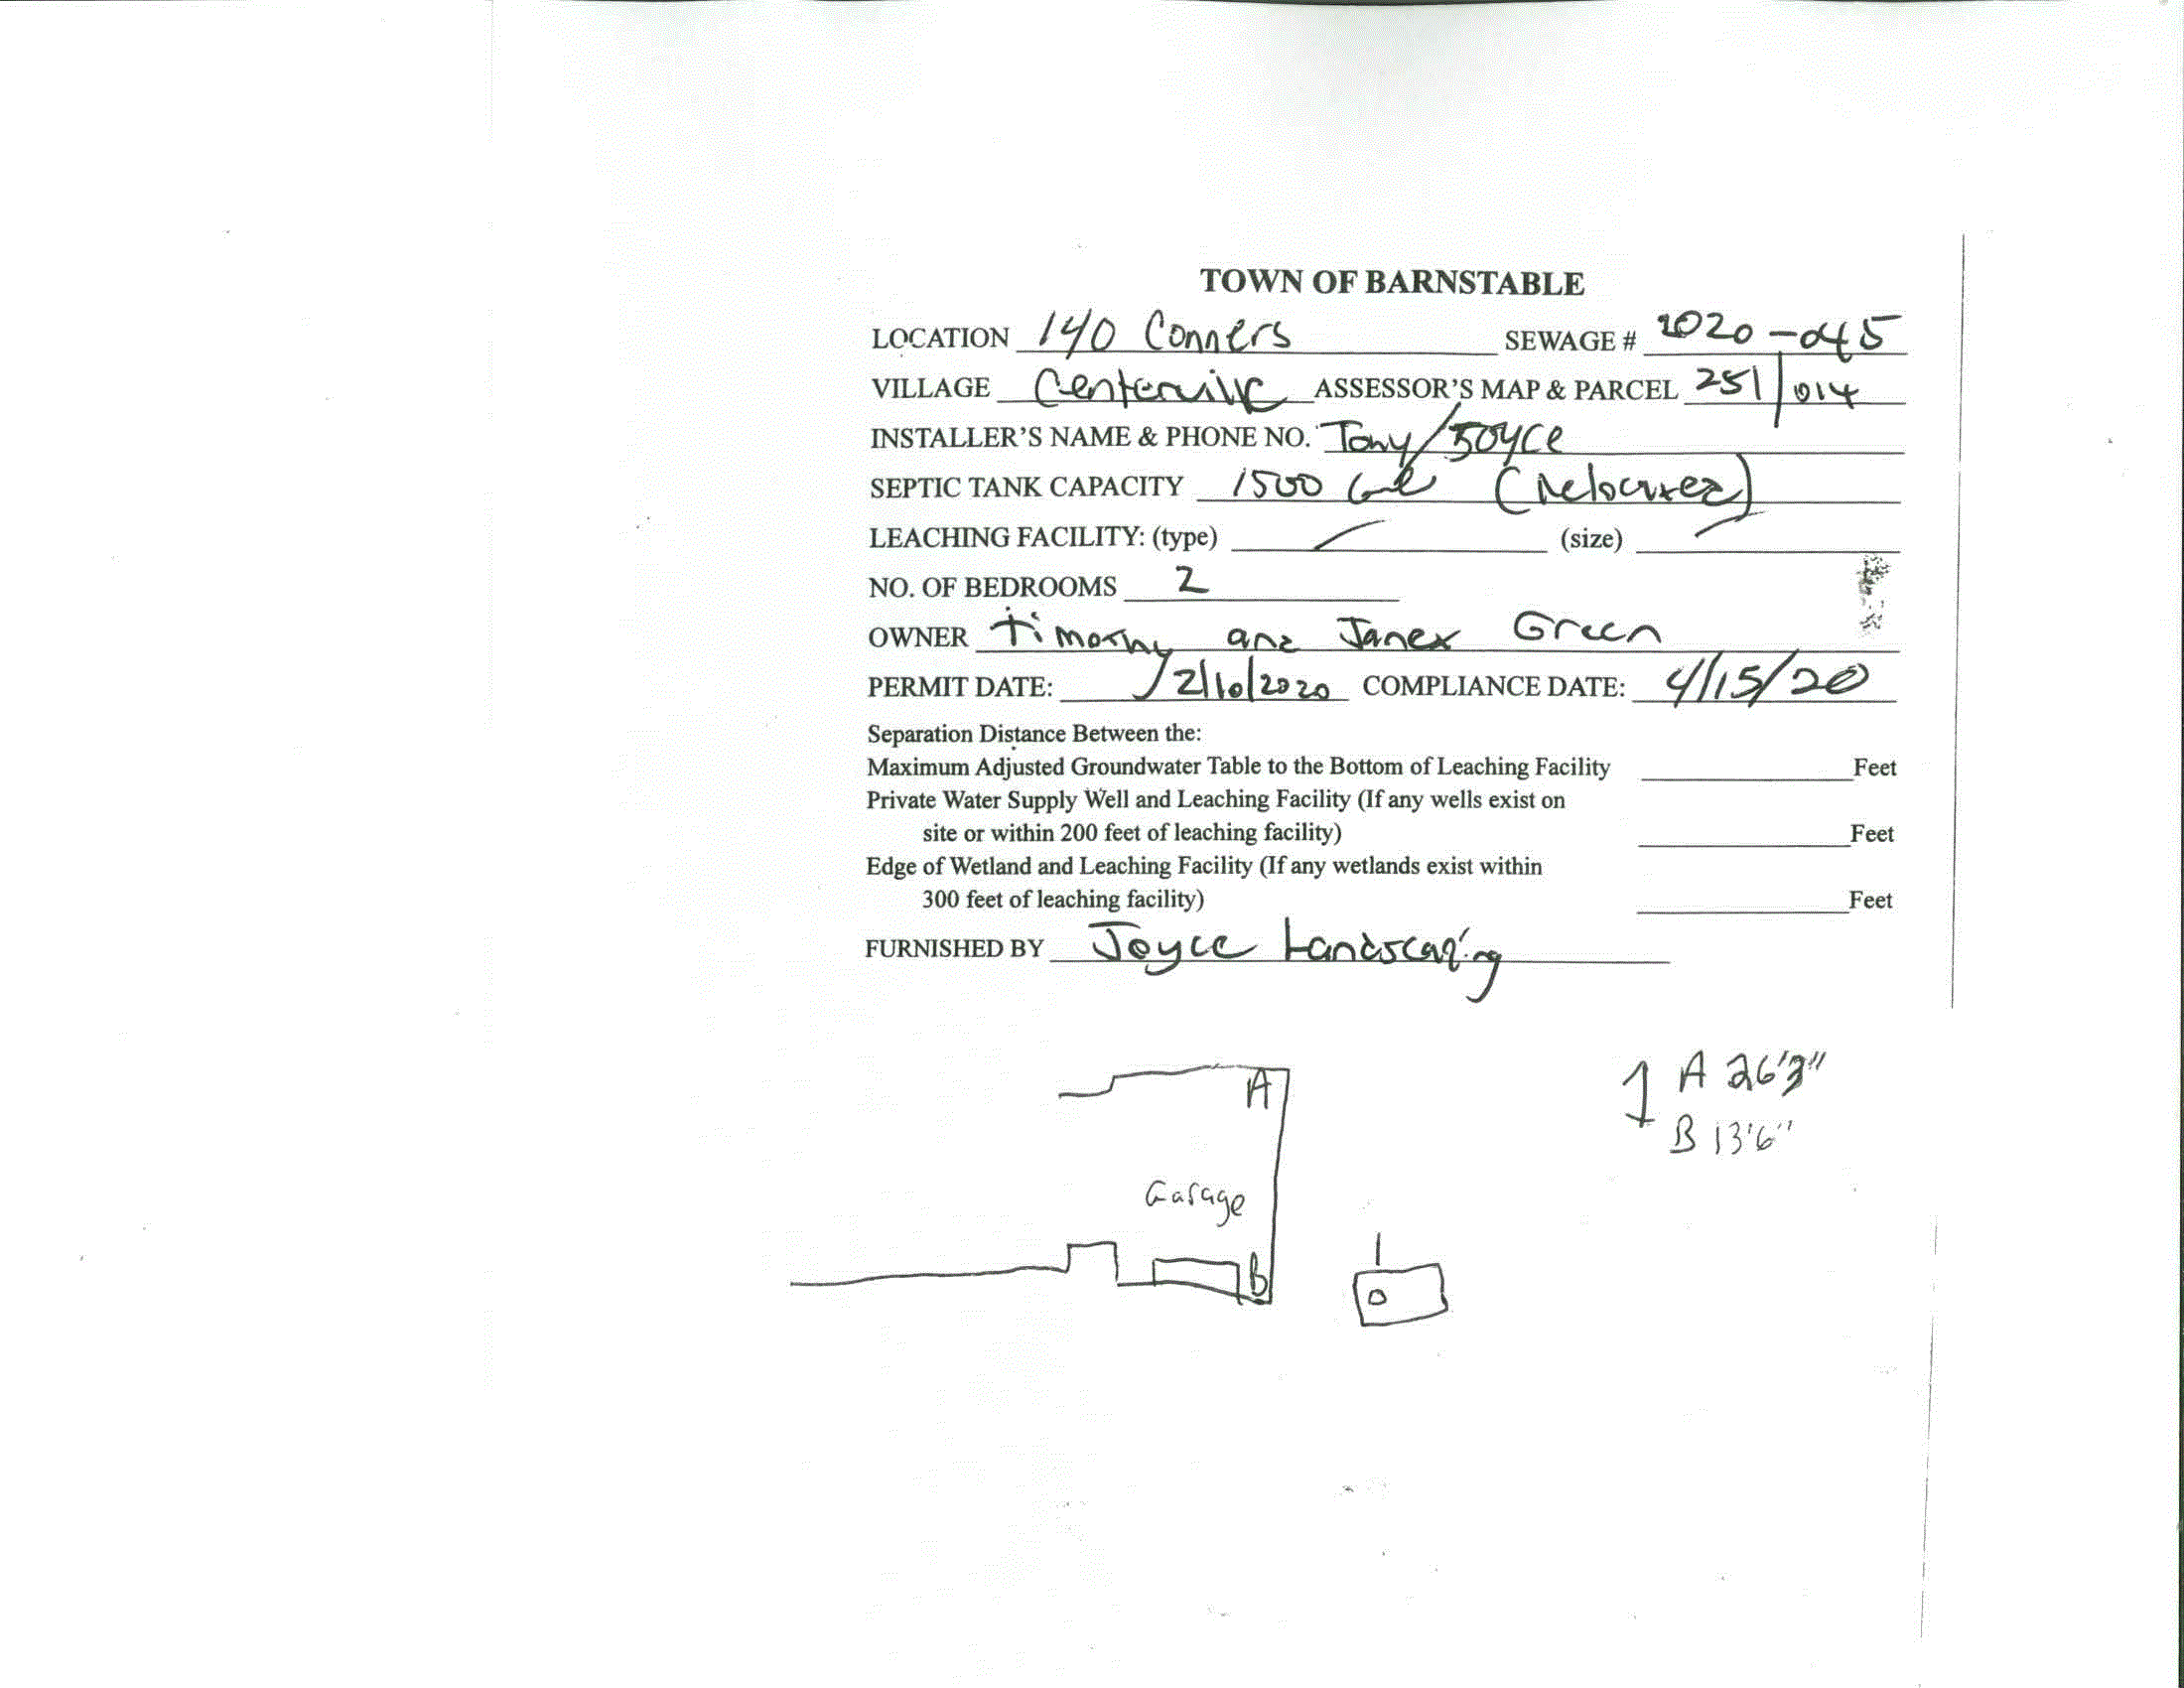 TOWN OF BARNSTABLE
LOCATION 140 Conners SEWAGE # 2020-045
VILLAGE Centerville ASSESSOR'S MAP & PARCEL 251/014
INSTALLER'S NAME & PHONE NO. Tony/Joyce
SEPTIC TANK CAPACITY 1500 Gal (Relocated)
LEACHING FACILITY: (type) (size)
NO. OF BEDROOMS 2
OWNER Timothy and Janet Green
PERMIT DATE: 2/10/2020 COMPLIANCE DATE: 4/15/20
Separation Distance Between the:
Maximum Adjusted Groundwater Table to the Bottom of Leaching Facility Feet
Private Water Supply Well and Leaching Facility (If any wells exist on
site or within 200 feet of leaching facility) Feet
Edge of Wetland and Leaching Facility (If any wetlands exist within
300 feet of leaching facility) Feet
FURNISHED BY Joyce Landscaping
1 A 26'3"
B 13'6"
A
Garage
B
1